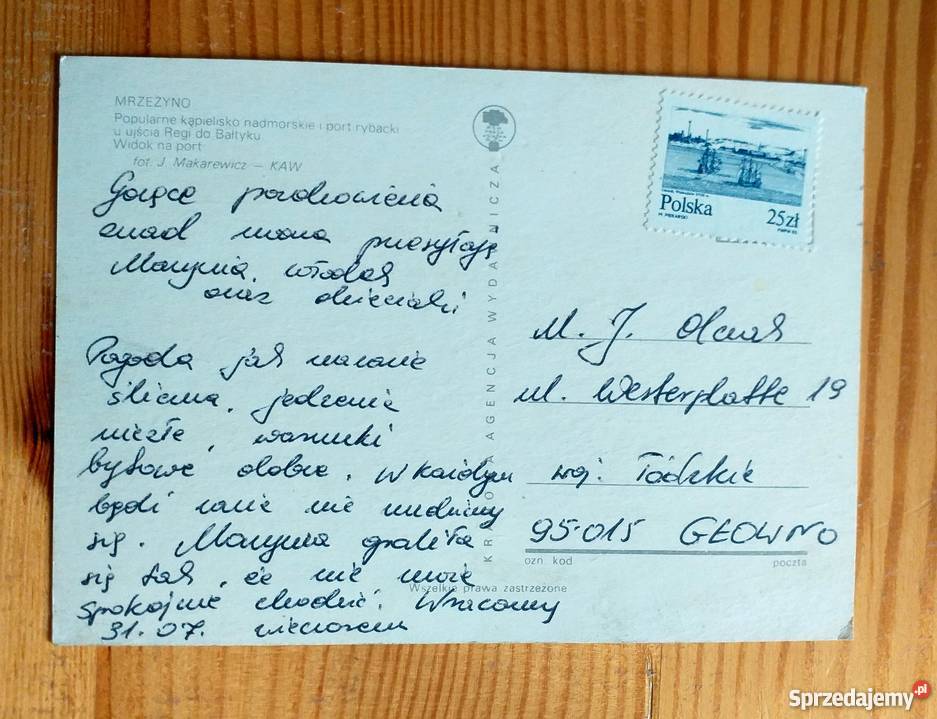 MRZEŻYNO
Popularne kąpielisko nadmorskie i port rybacki
u ujścia Regi do Bałtyku.
Widok na port
fot. J. Makarewicz — KAW
Gorące pozdrowienia
znad morza przesyłają
Marynia, Włodek
oraz dzieciaki
Pogoda jak marzenie
śliczna, jedzenie
niezłe, warunki
bytowe dobre. W każdym
bądź razie nie nudzimy
się. Marynia opaliła
się tak, że nie może
spokojnie chodzić. Wracamy
31.07. wieczorem
KRAJOWA AGENCJA WYDAWNICZA
Polska
25zł
M. J. Olczak
ul. Westerplatte 19
woj. Łódzkie
95-015 GŁOWNO
ozn. kod
poczta
Wszelkie prawa zastrzeżone
Sprzedajemy.pl